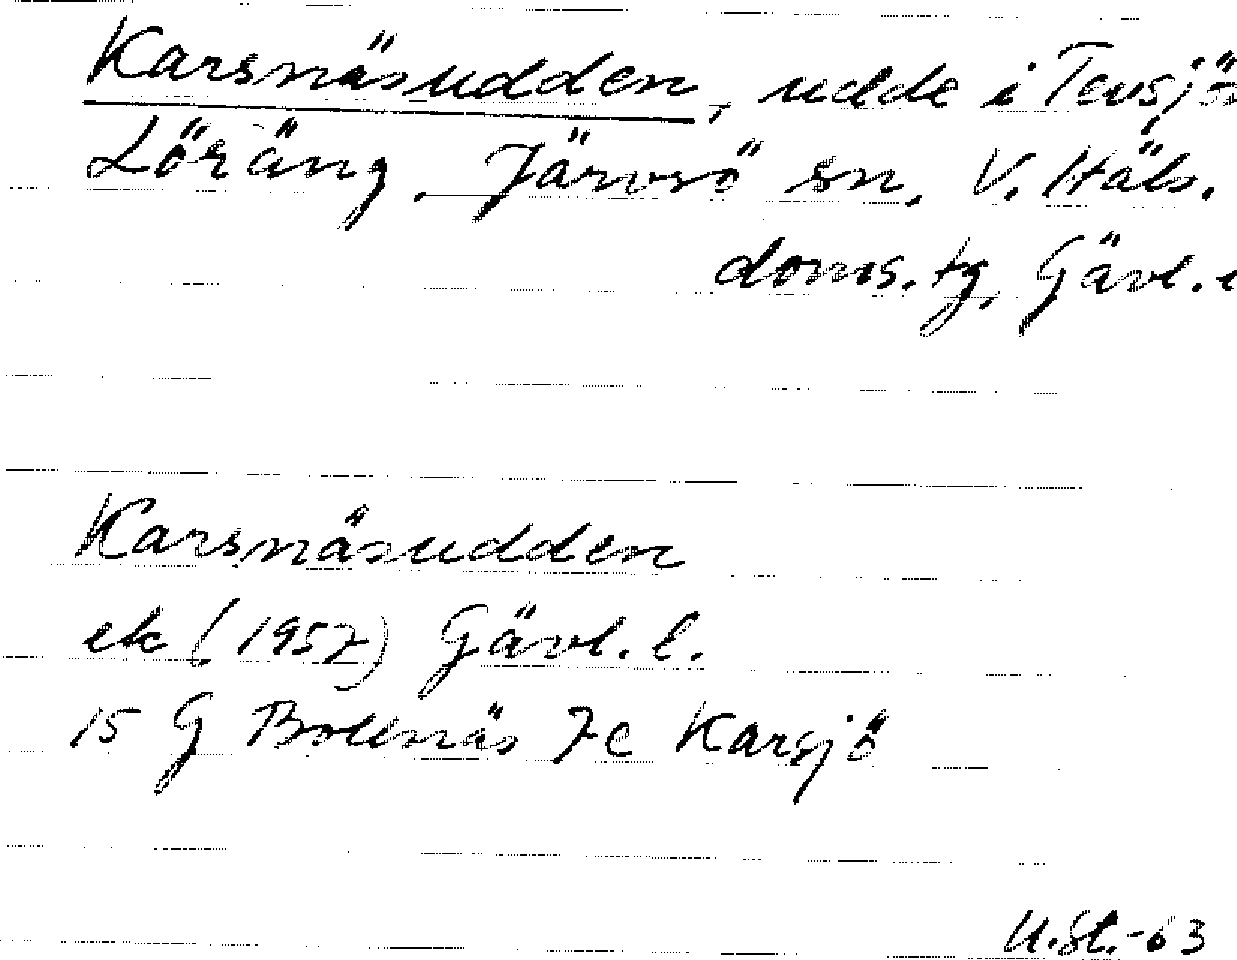 Karsnäsudden, udde i Tevsjön
Löräng, Järvsö sn, V. Häls.
doms.tg, Gävl.
Karsnäsudden
ek (1957) Gävl. l.
15 G Bollnäs 7c Karsjö
U.St.-63